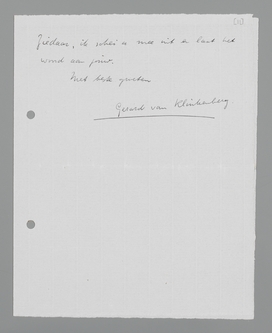 (11)
Ziedaar, ik schei er mee uit en laat het
woord aan jou.
Met beste groeten
Gerard van Klinkenberg